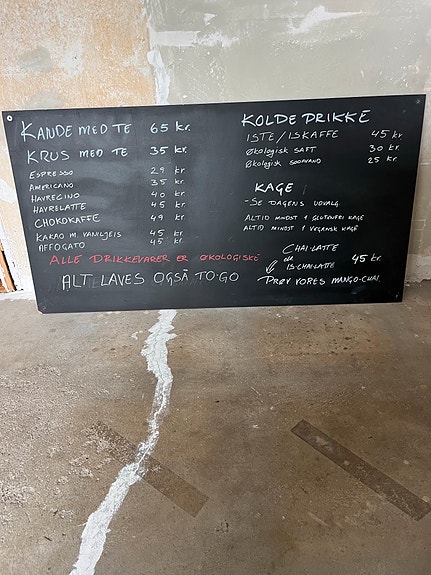 KANDE MED TE 65 kr.
KRUS MED TE 35 kr.
ESPRESSO 29 kr.
AMERICANO 35 kr.
HAVRECINO 40 kr.
HAVRELATTE 45 kr.
CHOKOKAFFE 49 kr.
KAKAO M. VANILJEIS 45 kr.
AFFOGATO 45 kr.
ALLE DRIKKEVARER ER ØKOLOGISKE
ALT LAVES OGSÅ TO-GO
KOLDE DRIKKE
ISTE/ISKAFFE 45 kr
ØKOLOGISK SAFT 30 kr
ØKOLOGISK SODAVAND 25 kr.
KAGE
-SE DAGENS UDVALG
ALTID MINDST 1 GLUTENFRI KAGE
ALTID MINDST 1 VEGANSK KAGE
CHAI-LATTE
IS-CHAI-LATTE 45 kr.
PRØV VORES MANGO-CHAI